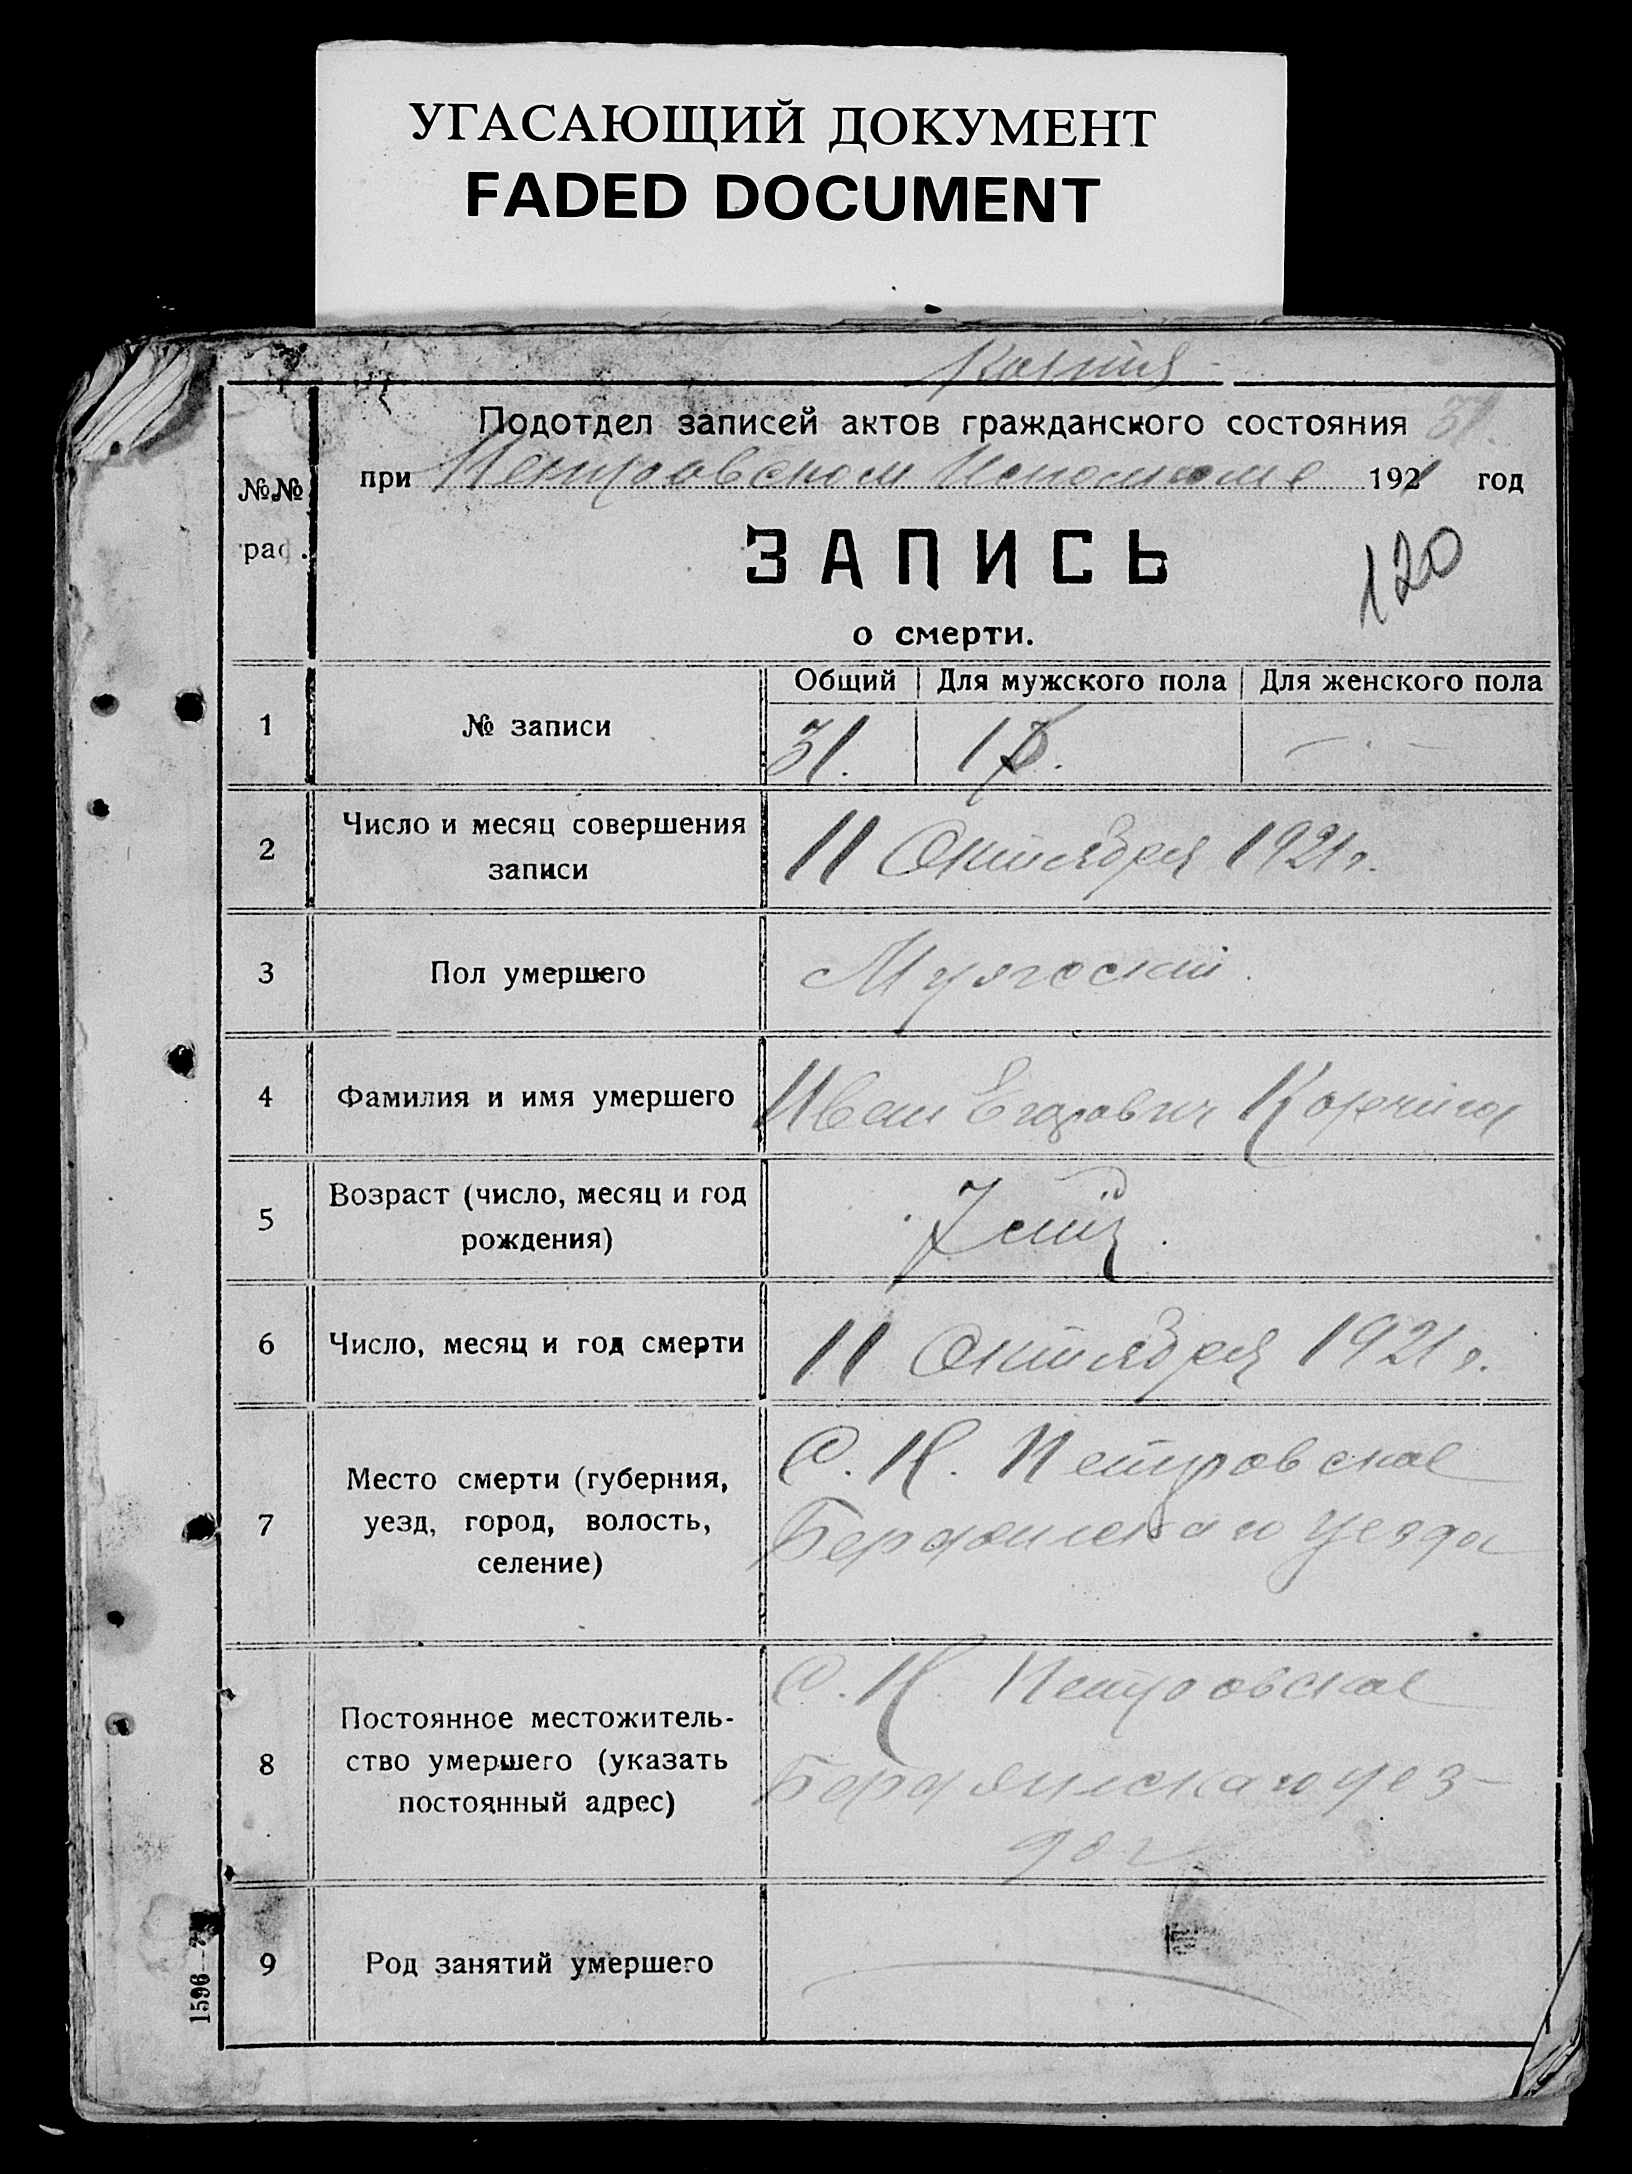 УГАСАЮЩИЙ ДОКУМЕНТ
FADED DOCUMENT
Копия
Подотдел записей актов гражданского состояния 31.
№№ граф.
при Петровском Исполкоме 1921 год
ЗАПИСЬ
120
о смерти.
Общий Для мужского пола Для женского пола
1 № записи 31. 1
2 Число и месяц совершения
записи
11 Октября 1921 г.
3 Пол умершего
Мужской.
4 Фамилия и имя умершего
Иван Егорович
5 Возраст (число, месяц и год
рождения)
7 лет.
6 Число, месяц и год смерти
11 Октября 1921 г.
7 Место смерти (губерния,
уезд, город, волость,
селение)
С. Н. Петровское
Бердянского уезда
8 Постоянное местожитель-
ство умершего (указать
постоянный адрес)
С. Н. Петровское
Бердянского уез-
да
9 Род занятий умершего
1596